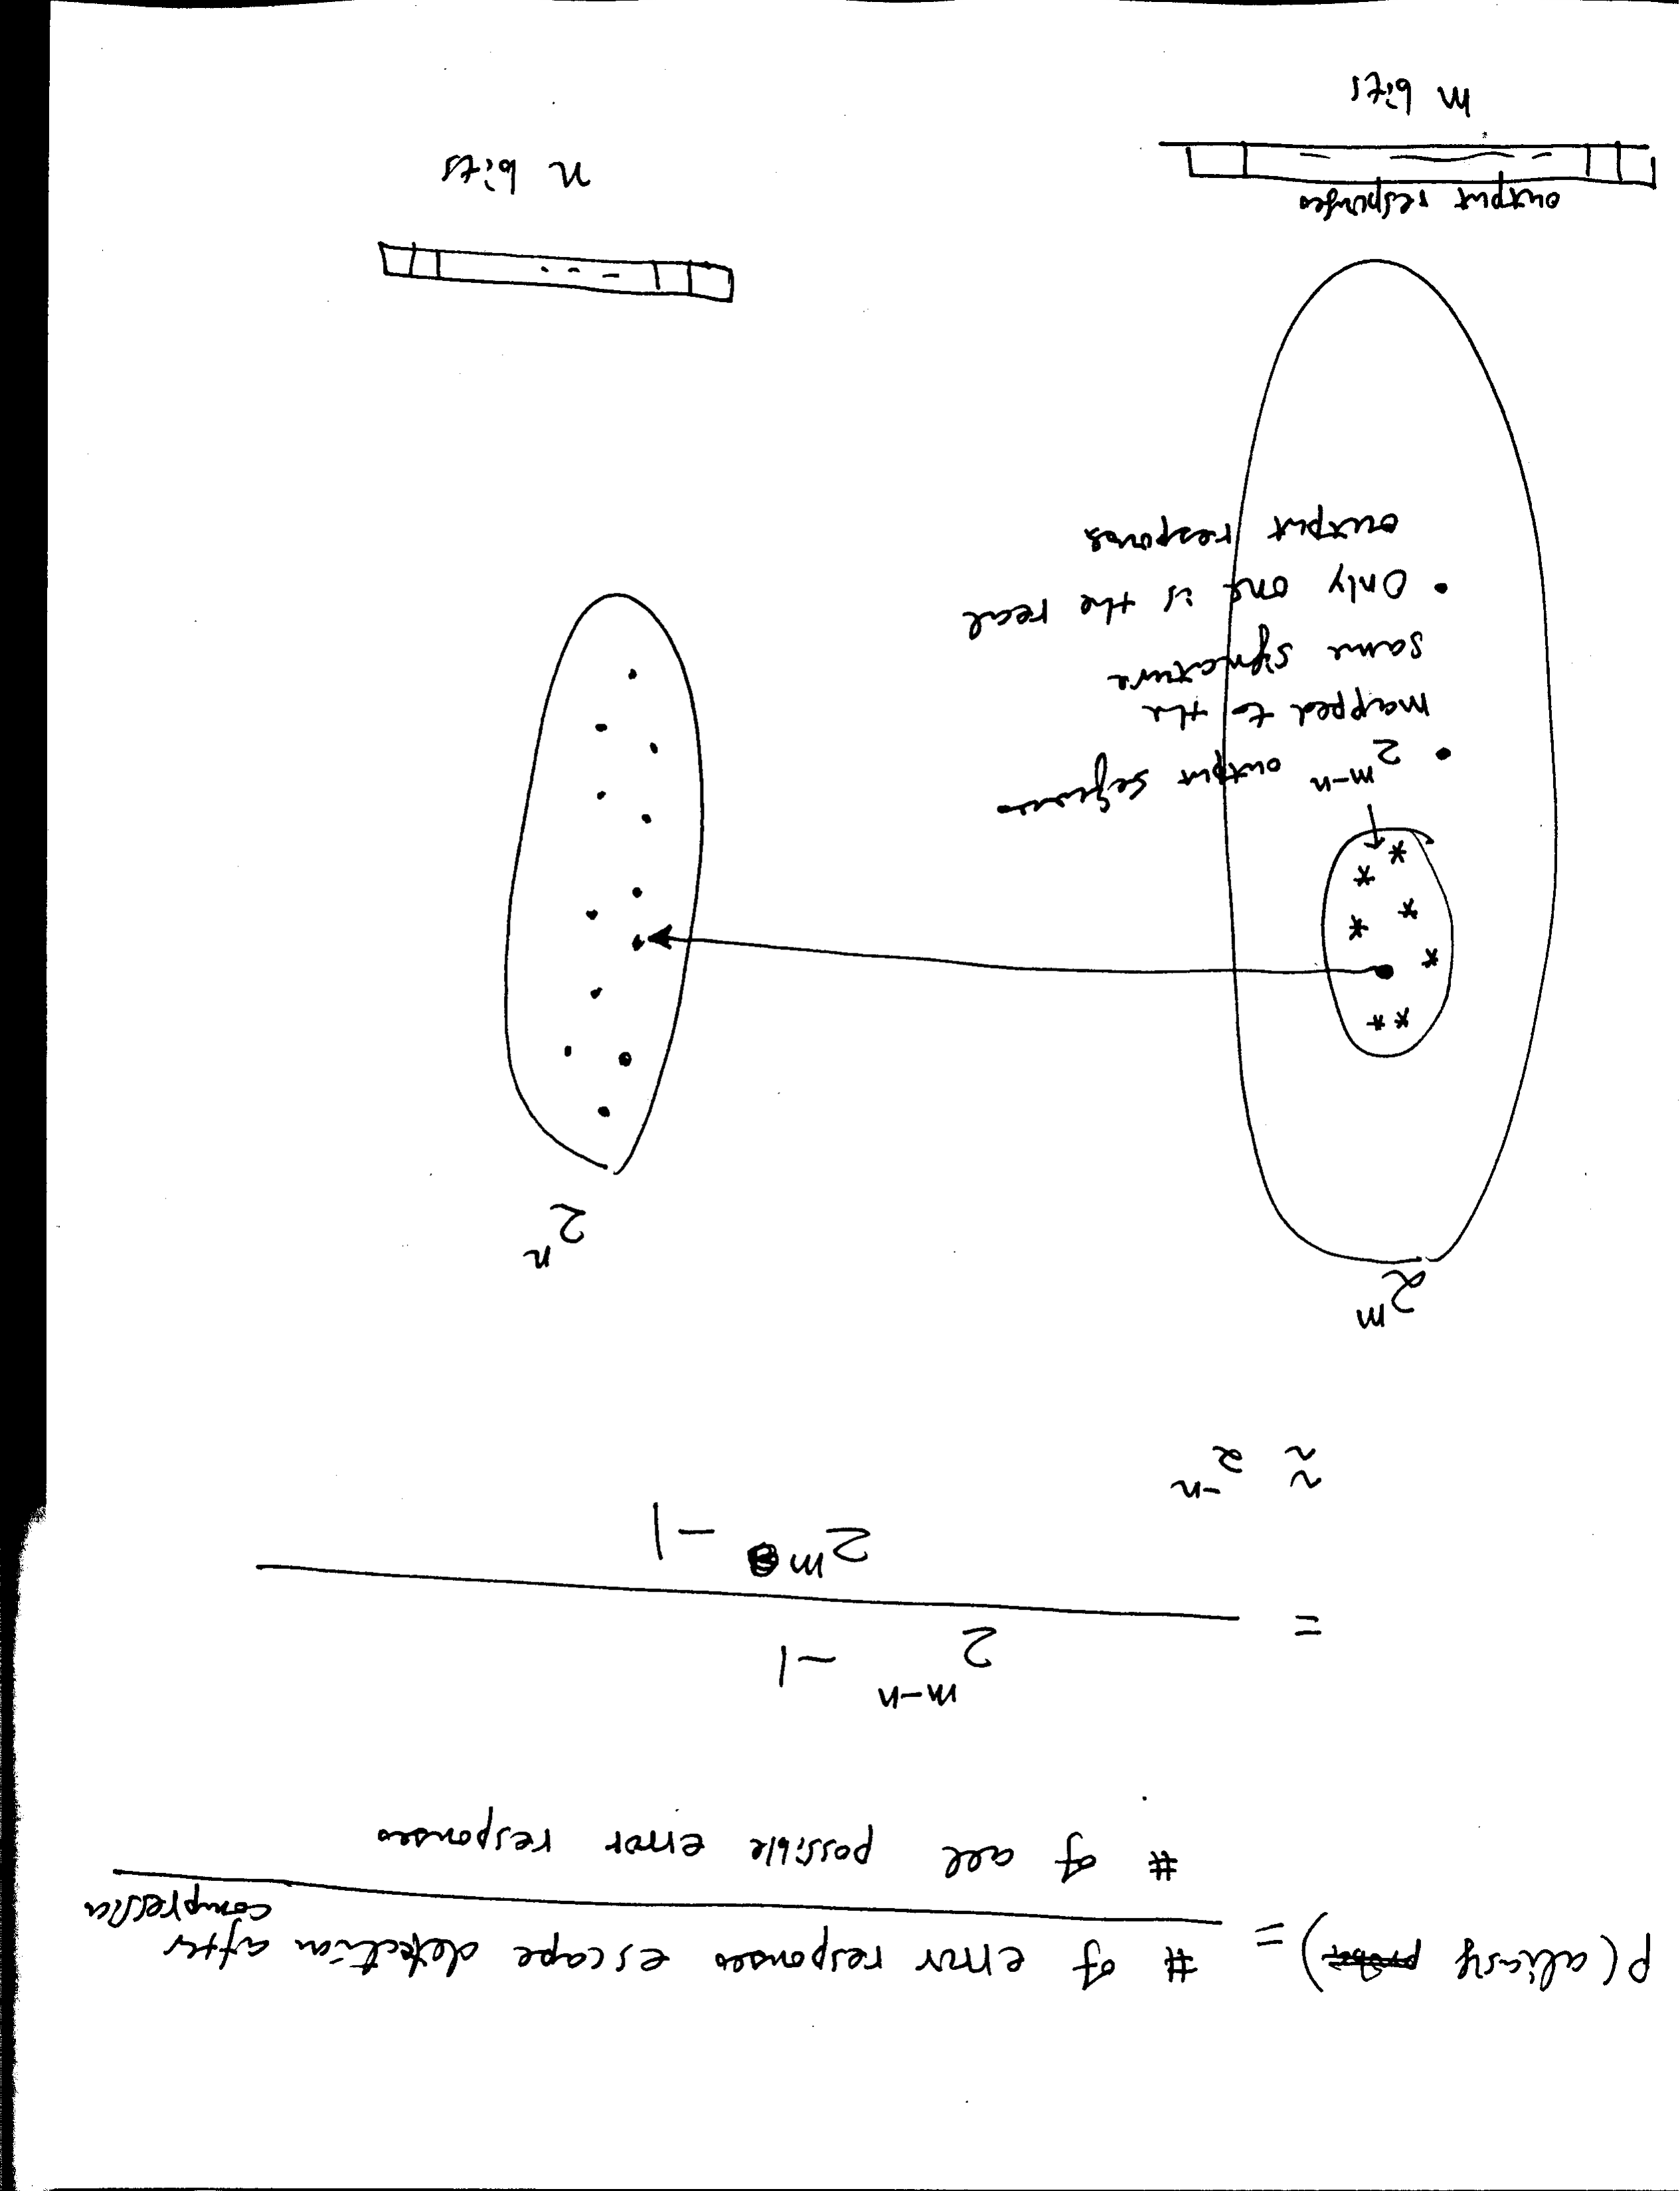 P(aliasing) = # of error responses escape detection after
compression
# of all possible error responses
= 2^(m-n) -1
2^m -1
≈ 2^-n
2^m
2^n
• 2^(m-n) output sequences
mapped to the
same signature
• Only one is the real
output response
output responses
n bits
m bits